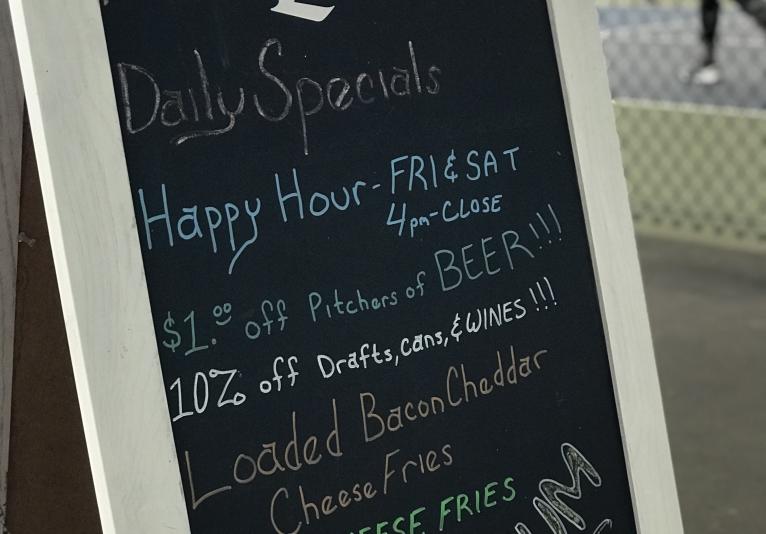 Daily Specials
Happy Hour - FRI & SAT
4pm-CLOSE
$1.00 off Pitchers of BEER!!!
10% off Drafts, cans, & WINES!!!
Loaded Bacon Cheddar
Cheese Fries
FRIES